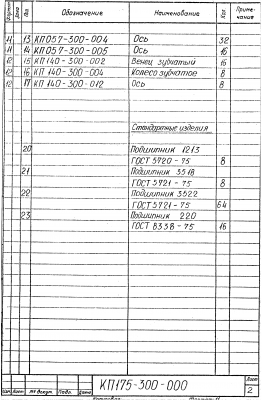 Формат Зона Поз. Обозначение Наименование Кол. Приме-
чание
11 13 КП057-300-004 Ось 32
11 14 КП057-300-005 Ось 16
12 15 КП140-300-002 Венец зубчатый 16
12 16 КП140-300-004 Колесо зубчатое 8
12 17 КП140-300-012 Ось 8
Стандартные изделия
20 Подшипник 1213
ГОСТ 5720-75 8
21 Подшипник 3518
ГОСТ 5721-75 8
22 Подшипник 3522
ГОСТ 5721-75 64
23 Подшипник 220
ГОСТ 8338-75 16
КП175-300-000
Лист
2
Изм. Лист № докум. Подп. Дата
Копировал Формат 11